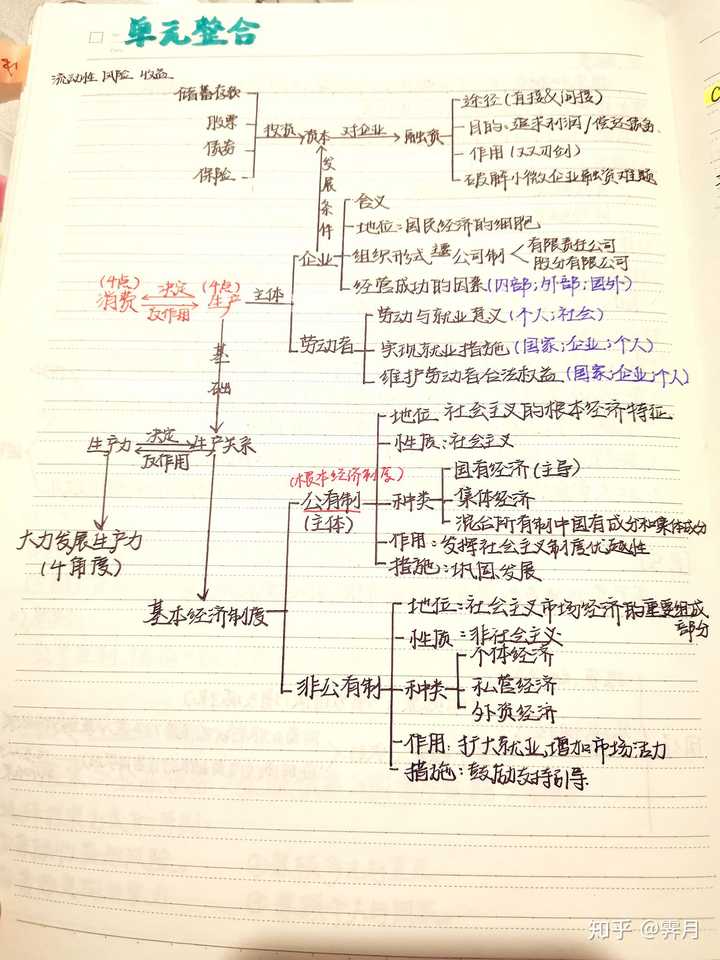 单元整合
流动性 风险 收益
储蓄存款
股票
债券
保险
投资 资本 对企业 融资
途径(直接&间接)
目的:追求利润/偿还债务
作用(双刃剑)
破解小微企业融资难题
发展条件
企业
含义
地位:国民经济的细胞
组织形式 主要 公司制
有限责任公司
股份有限公司
经营成功的因素(内部;外部;国外)
(4点) (4点)
消费 决定 生产 主体
反作用
劳动者
劳动与就业意义(个人;社会)
实现就业措施(国家;企业;个人)
维护劳动者合法权益(国家;企业;个人)
基础
生产力 决定 生产关系
反作用
大力发展生产力
(4角度)
基本经济制度
(根本经济制度)
公有制
(主体)
地位:社会主义的根本经济特征
性质:社会主义
种类
国有经济(主导)
集体经济
混合所有制中国有成分和集体成分
作用:发挥社会主义制度优越性
措施:巩固、发展
非公有制
地位:社会主义市场经济的重要组成
部分
性质:非社会主义
种类
个体经济
私营经济
外资经济
作用:扩大就业,增加市场活力
措施:鼓励支持引导
知乎 @霁月